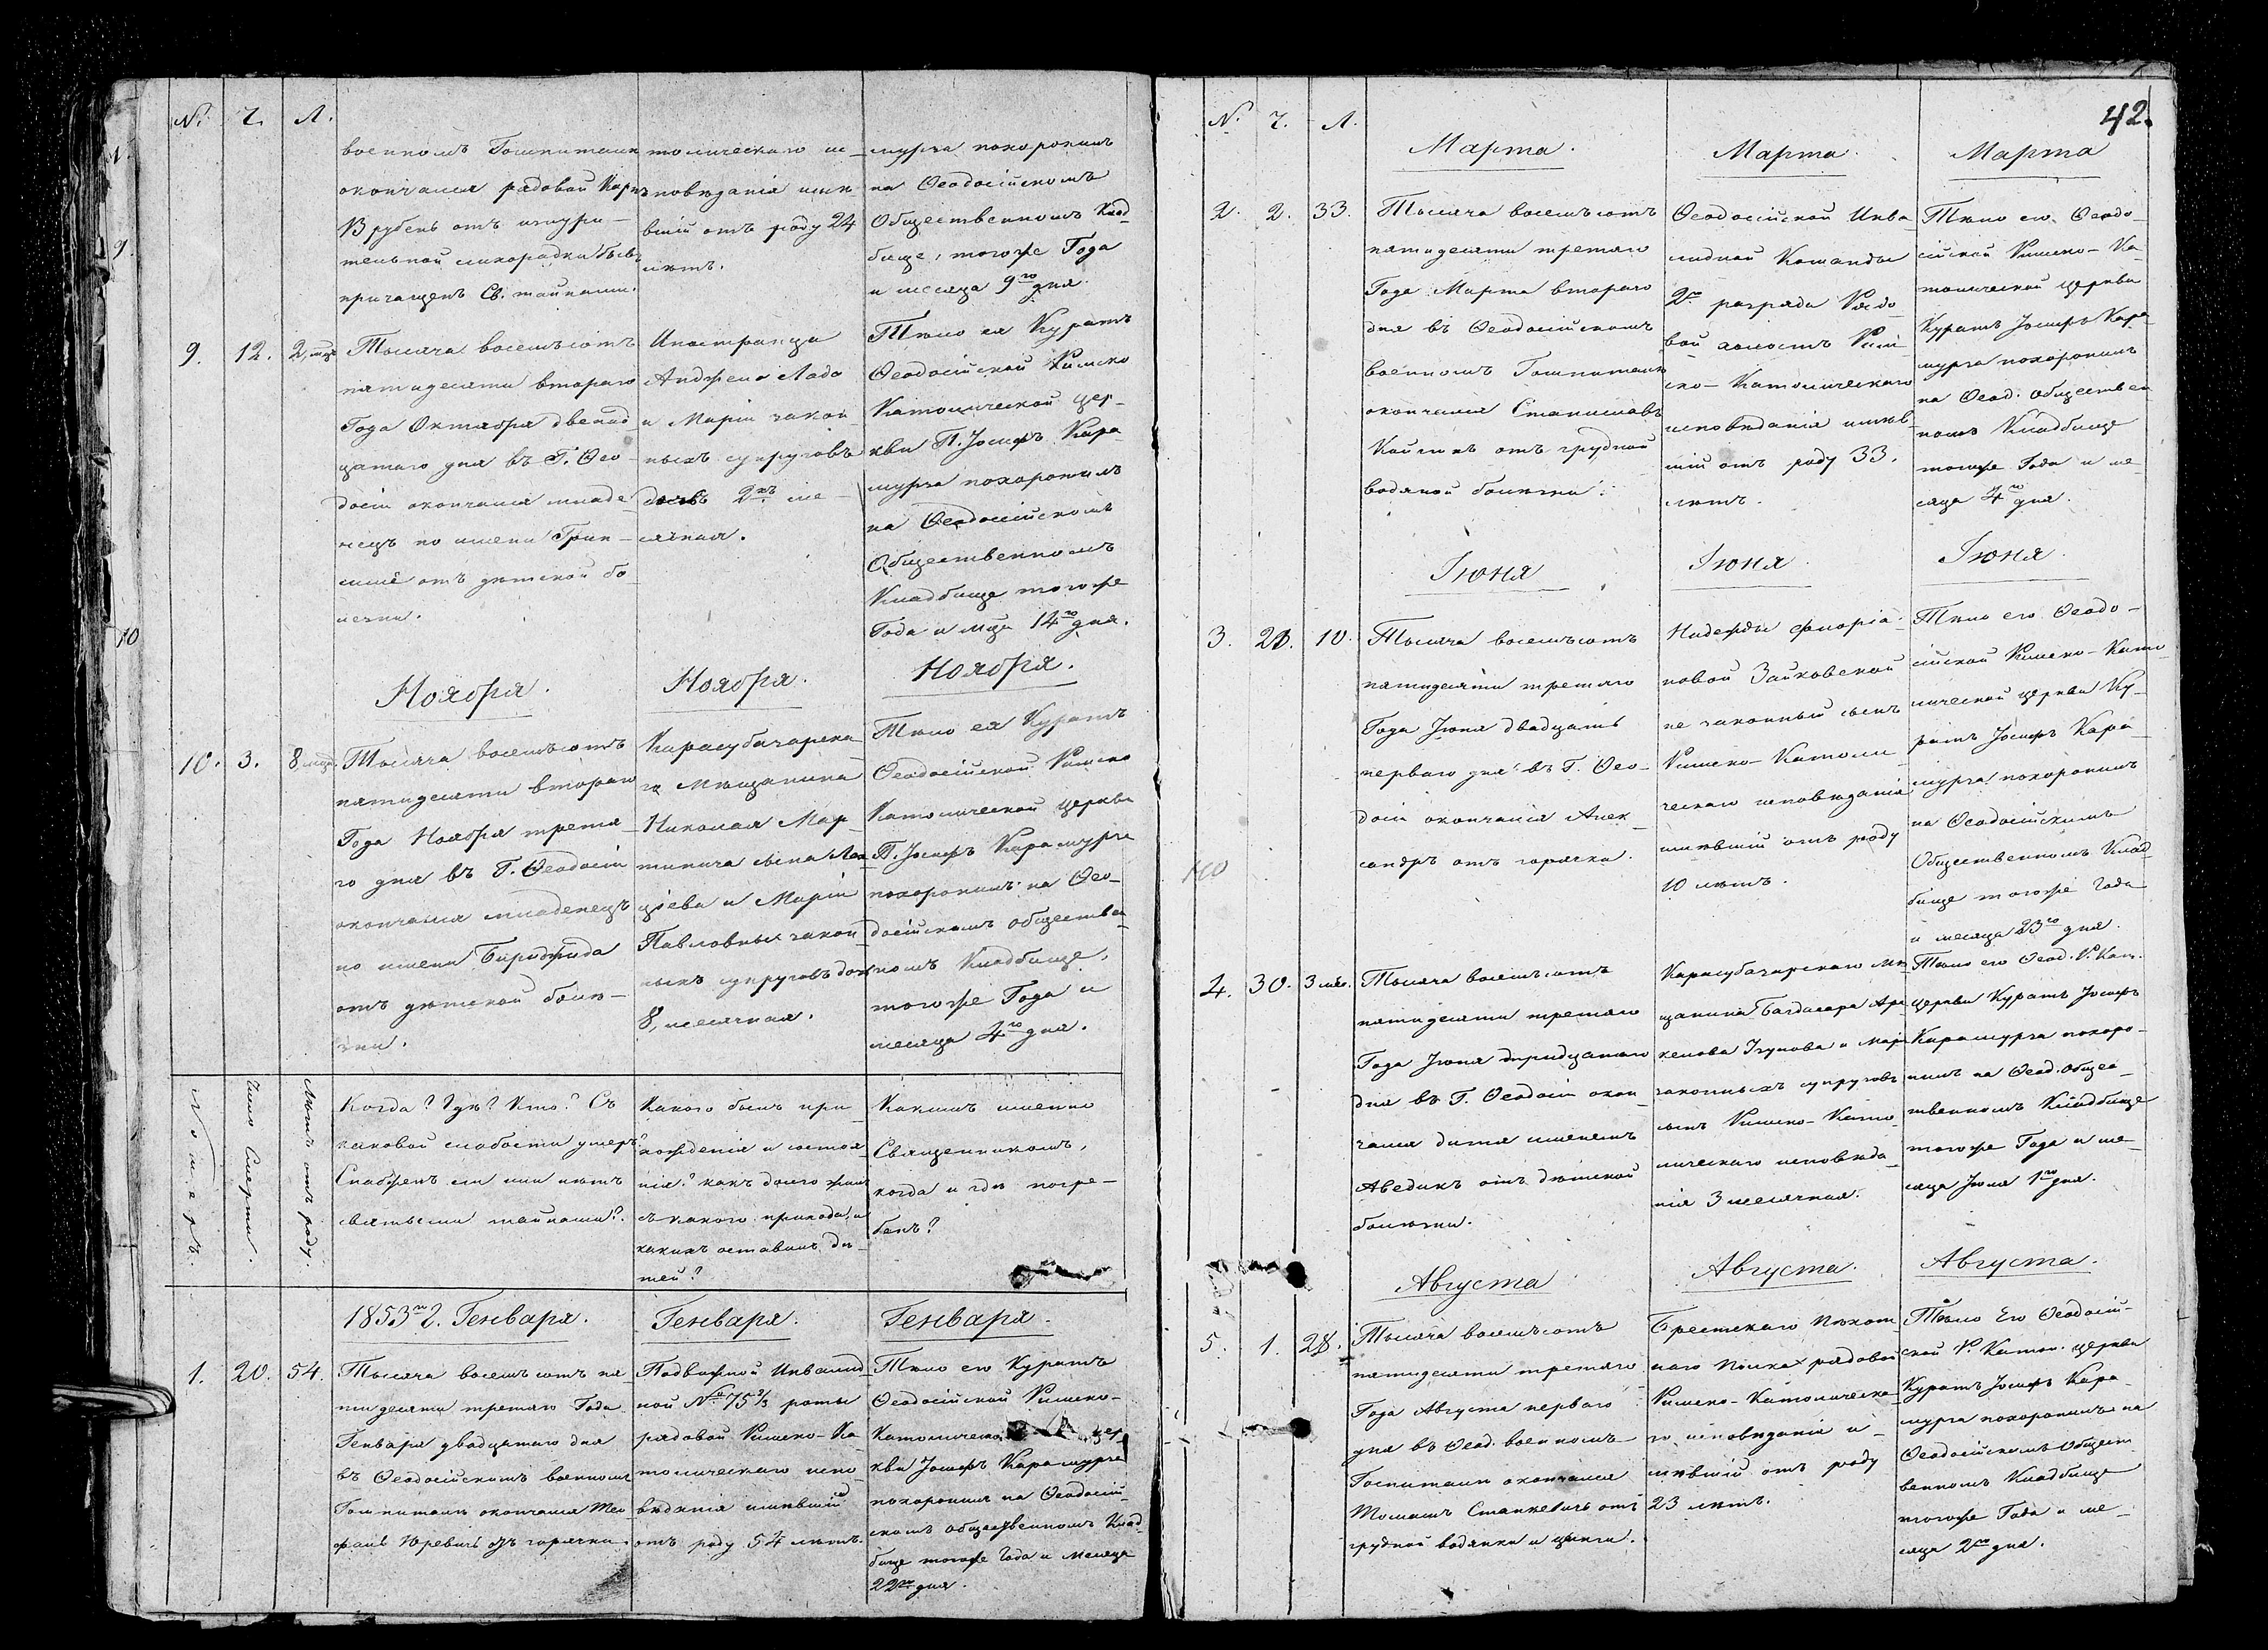 №. Ч. Л.
военномъ Гошпитали
окончался рядовой Карлъ
Врубель отъ изнури-
тельной лихорадки бывъ
причащенъ Св. тайнами.
толическаго ис-
повѣданія имѣ
вшій отъ роду 24
лѣтъ.
мурза похоронилъ
на Ѳеодосійскомъ
Общественномъ Клад-
бище, тогоже Года
и месяца 9го дня.
9. 12. 2, мца
Тысяча восемьсотъ
пятидесяти втораго
Года Октября двенад
цатаго дня въ Г. Ѳео-
досіи окончался младе
нецъ по имени
отъ дѣтской бо-
лезни.
Иностранца
Анджело Ладо
и Маріи закон
ныхъ супруговъ
дочь 2хъ ме-
сячная.
Тѣло ея Куратъ
Ѳеодосійской Римско
Католической цер-
кви П. Іосифъ Кара
мурза похоронилъ
на Ѳеодосійскомъ
Общественномъ
Кладбище тогоже
Года и мца 14го дня.
Ноября. Ноября. Ноября.
10. 3. 8, мца.
Тысяча восемьсотъ
пятидесяти втораго
Года Ноября третья-
го дня въ Г. Ѳеодосіи
окончался младенецъ
по имени Бириджида
отъ дѣтской болѣ-
зни.
Карасубазарска-
го Мѣщанина
Николая Мар-
тинича сына
и Маріи
Павловны закон
ныхъ супруговъ дочь
8, месячная.
Тѣло ея Куратъ
Ѳеодосійской Римско
Католической церкви
П. Іосифъ Карамурза
похоронилъ на Ѳео-
досійскомъ обществен
номъ Кладбище,
тогоже Года и
месяца 4го дня.
Номеръ.
Число Смерти.
Лѣтъ отъ роду.
Когда? Гдѣ? Кто? Съ
каковой слабости умеръ?
Снабженъ ли или нѣтъ
святыми тайнами?
Какого былъ при
рожденія и состоя
нія? какъ долго жилъ
съ какого прихода, и
какихъ оставилъ дѣ-
тей?
Какимъ именно
Священникомъ,
когда и гдѣ погре-
бенъ?
1853го г. Генваря. Генваря. Генваря.
1. 20. 54.
Тысяча восемьсотъ пя
тидесяти третяго Года
Генваря двадцатаго дня
въ Ѳеодосійскомъ военномъ
Гошпитали окончался Тео
филъ Юревичъ отъ горячки.
Подвижной Инвалид
ной № 75 2/3 роты
рядовой Римско-Ка
толическаго испо
вѣданія имѣвшій
отъ роду 54 лѣтъ.
Тѣло его Куратъ
Ѳеодосійской Римско-
Католическо цер
кви Іосифъ Карамурза
похоронилъ на Ѳеодосій-
скомъ общественномъ Клад-
бище тогоже Года и Месяца
22го дня.
42.
№. Ч. Л.
Марта. Марта. Марта
2. 2. 33.
Тысяча восемьсотъ
пятидесяти третяго
Года Марта втораго
дня въ Ѳеодосійскомъ
военномъ Гошпитали
окончался Станиславъ
отъ грудной
водяной болѣзни.
Ѳеодосійской Инва
лидной Команды
2го разряда Рядо
вой холостъ Рим-
ско-Католическаго
исповѣданія имѣв
шій отъ роду 33.
лѣтъ.
Тѣло его Ѳеодо-
сійской Римско-Ка-
толической церкви
Куратъ Іосифъ Кара-
мурза похоронилъ
на Ѳеод. обществен
номъ Кладбище
тогоже Года и ме-
сяца 4го дня.
Іюня Іюня. Іюня.
3. 21. 10.
Тысяча восемьсотъ
пятидесяти третяго
Года Іюня двадцать
перваго дня въ Г. Ѳео-
досіи окончался Алек-
сандръ отъ горячки.
Надежды Флоріа-
новой Зайковской
не законный сынъ
Римско-Католи-
ческаго исповѣданія
имѣвшій отъ роду
10 лѣтъ.
Тѣло его Ѳеодо-
сійской Римско-Като
лической церкви Ку-
ратъ Іосифъ Кара-
мурза похоронилъ
на Ѳеодосійскомъ
Общественномъ Клад-
бище тогоже Года
и месяца 23го дня.
4. 30. 3 мѣс.
Тысяча восемьсотъ
пятидесяти третяго
Года Іюня тридцатаго
дня въ Г. Ѳеодосіи окон
чался дитя именемъ
Аведикъ отъ дѣтской
болѣзни.
Карасубазарскаго Мѣ
щанина Багдасара Ара
келова и Маріи
законныхъ супруговъ
сынъ Римско-Като-
лическаго исповѣда-
нія 3 месячная.
Тѣло его Ѳеод. Р. Кат.
церкви Куратъ Іосифъ
Карамурза похоро-
нилъ на Ѳеод. общес-
твенномъ Кладбище
тогоже Года и ме-
сяца Іюля 1го дня.
Августа Августа. Августа.
5. 1. 28.
Тысяча восемьсотъ
пятидесяти третяго
Года Августа перваго
дня въ Ѳеод. военномъ
Госпитали окончался
Томашъ Станкевичъ отъ
грудной водянки и цынги.
Брестскаго Пѣхот
наго Полка рядовой
Римско-Католическа-
го исповѣданія и-
мѣвшій отъ роду
23 лѣтъ.
Тѣло Его Ѳеодосій-
ской Р. Катол. церкви
Куратъ Іосифъ Кара-
мурза похоронилъ на
Ѳеодосійскомъ Общест-
венномъ Кладбище
тогоже Года и ме-
сяца 2го дня.